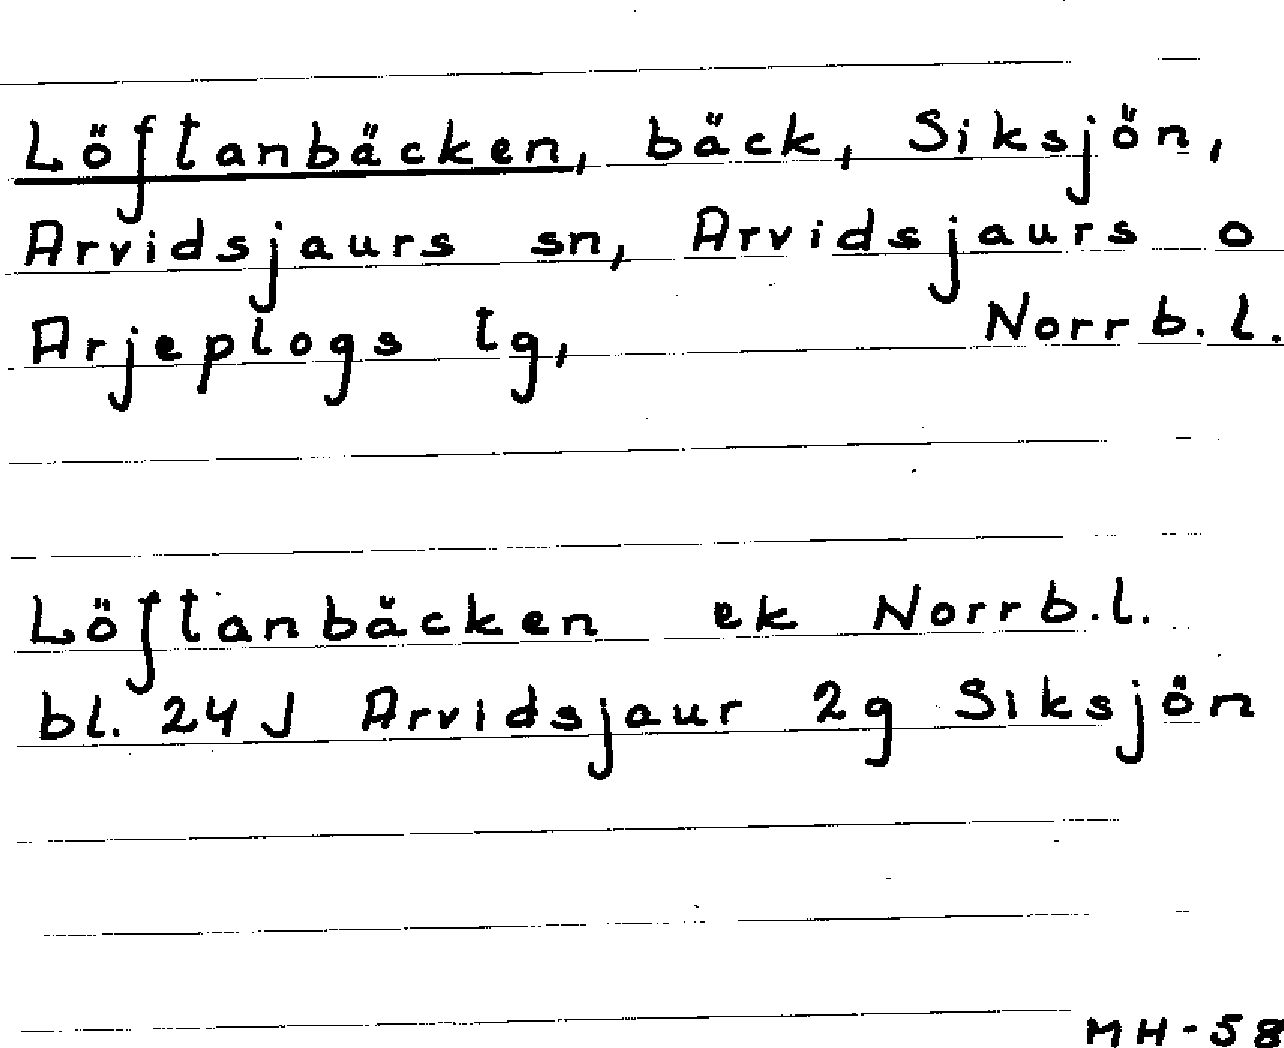 Löftanbäcken, bäck, Siksjön,
Arvidsjaurs sn, Arvidsjaurs o
Arjeplogs tg, Norrb. l.
Löftanbäcken ek Norrb.l.
bl. 24 J Arvidsjaur 2g Siksjön
MH-58